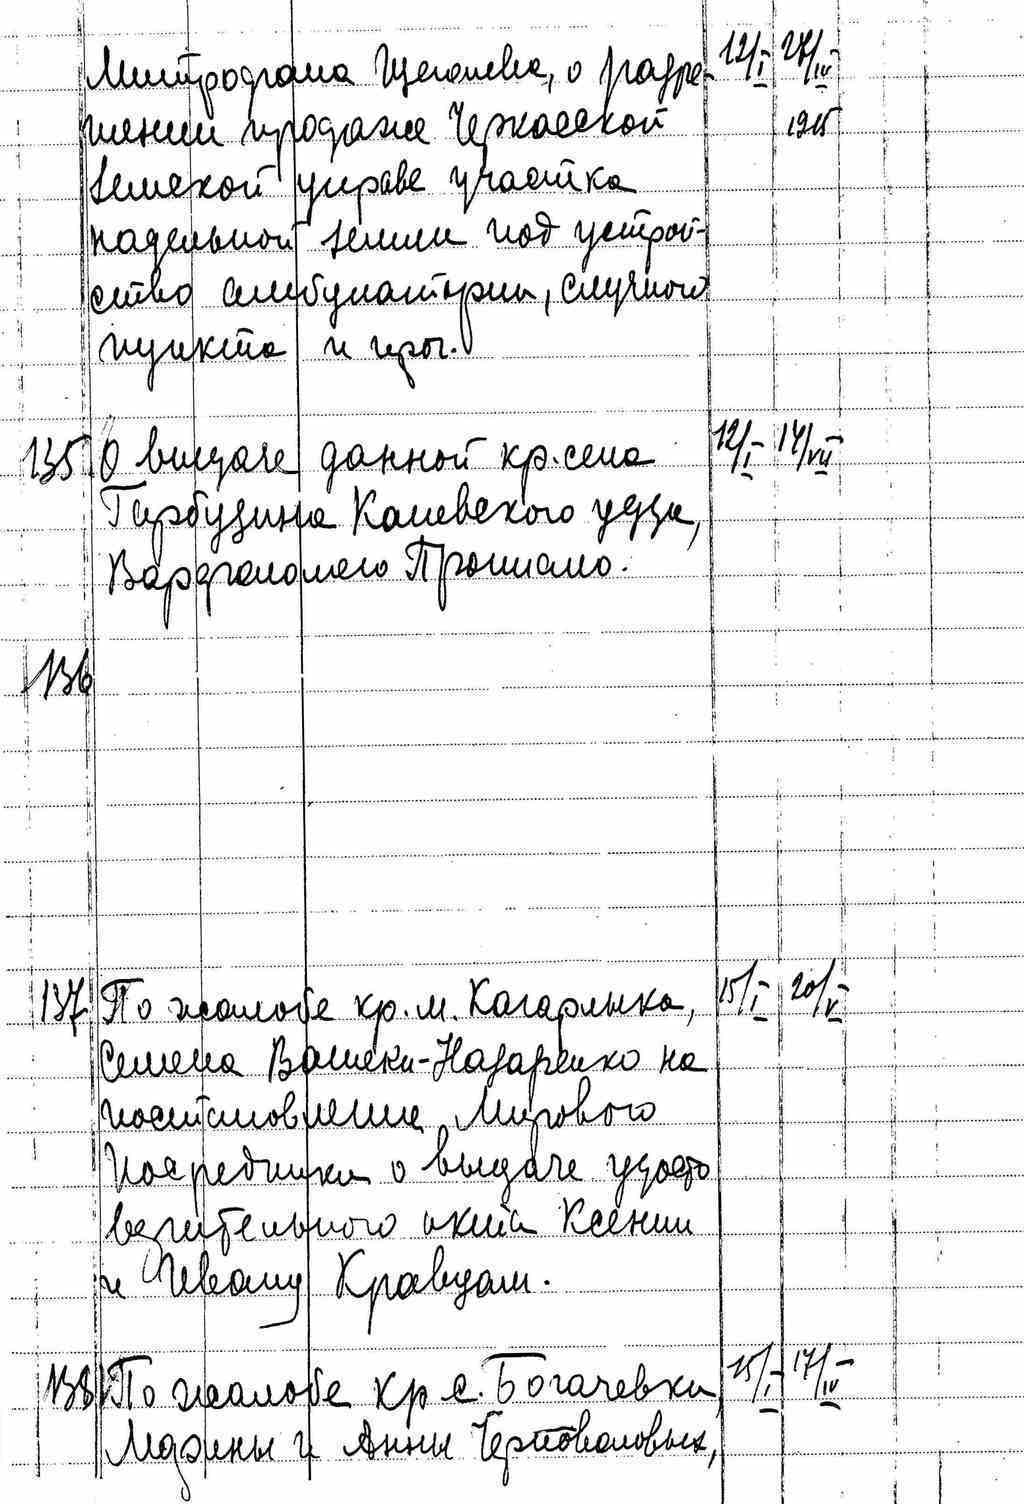 Митрофана Щеголева, о разре- 12/I 27/IV
шении продажи Черкасской 1915
земской управе участка
надельной земли под устрой-
ство амбулатории, случного
пункта и проч.
135 О выдаче данной кр. села 12/I 14/VII
Гарбузина Каневского уезда,
Варфоломею
136
137 По жалобе кр. м. Кагарлыка, 15/I 20/V
Семена Вашеки-Назаренко на
постановление Мирового
Посредника о выдаче удосто
верительного акта Ксении
и Ивану Кравцам.
138 По жалобе кр с. Богачевки, 15/I 17/IV
и Анны Черноволовых,